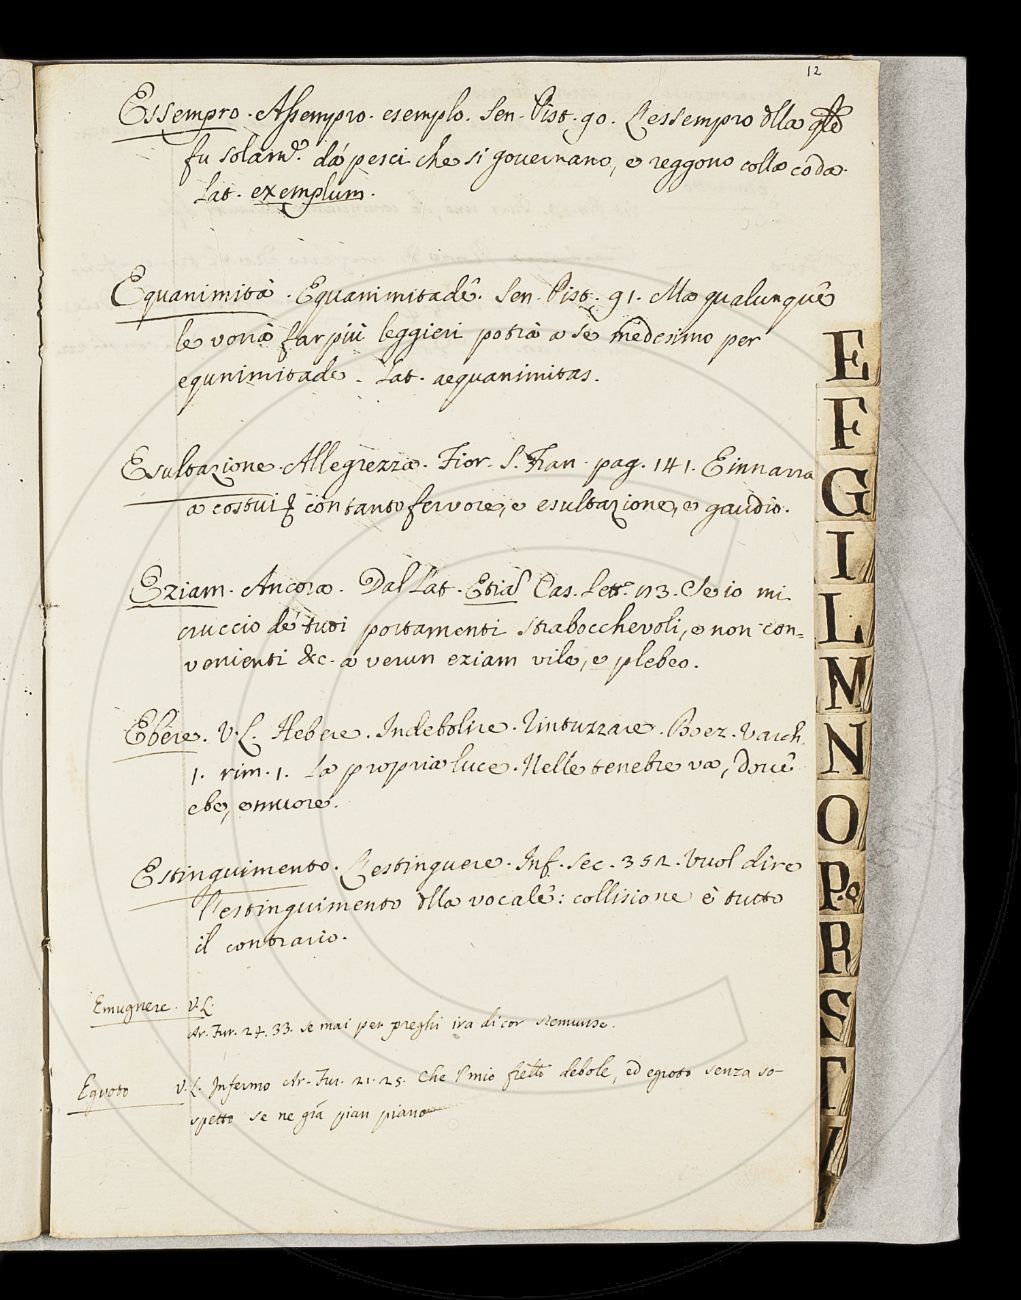 12
Essempro. Assempro. esemplo. Sen. Pist. 90. L'essempro dlla qle
fu solam.e da pesci che si governano, e reggono colla coda.
Lat. exemplum.
Equanimità. Equanimitade. Sen. Pist. 91. Ma qualunque
le vorrà far più leggieri potrà a sè medesimo per
equnimitade. Lat. aequanimitas.
Esultazione. Allegrezza. Fior. S. Fran. pag. 141. E innarra
a costui con tanto fervore, e esultazione, e gaudio.
Eziam. Ancora. Dal Lat. Cas. Lett. 113. Se io mi
cruccio de tuoi portamenti strabocchevoli, e non con=
venienti &c. a verun eziam vile, e plebeo.
Ebere. V. L. Hebere. Indebolire. Rintuzzare. Boez. Varch.
1. rim. 1. La propria luce. Nelle tenebre va, dove
ebe, e muore.
Estinguimento. L'estinguere. Inf. sec. 352. Vuol dire
l'estinguimento dlla vocale: collisione è tutto
il contrario.
Emugnere. V. L.
Ar. Fur. 24. 33. se mai per preghi ira di cor s'emunse.
Egroto V. L. Infermo Ar. Fur. 21. 25. Che l'mio frello debole, ed egroto senza so-
spetto se ne già pian piano
E
F
G
I
L
M
N
O
P.Q
R
S
T
V